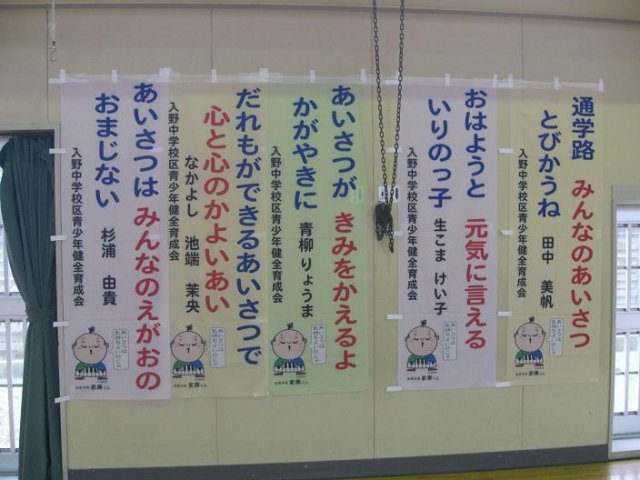 通学路 みんなのあいさつ
とびかうね 田中 美帆
入野中学校区青少年健全育成会
おはようと 元気に言える
いりのっ子 生こま けい子
入野中学校区青少年健全育成会
あいさつが きみをかえるよ
かがやきに 青柳 りょうま
入野中学校区青少年健全育成会
だれもができるあいさつで
心と心のかよいあい
なかよし 池端 茉央
入野中学校区青少年健全育成会
あいさつは みんなのえがおの
おまじない 杉浦 由貴
入野中学校区青少年健全育成会